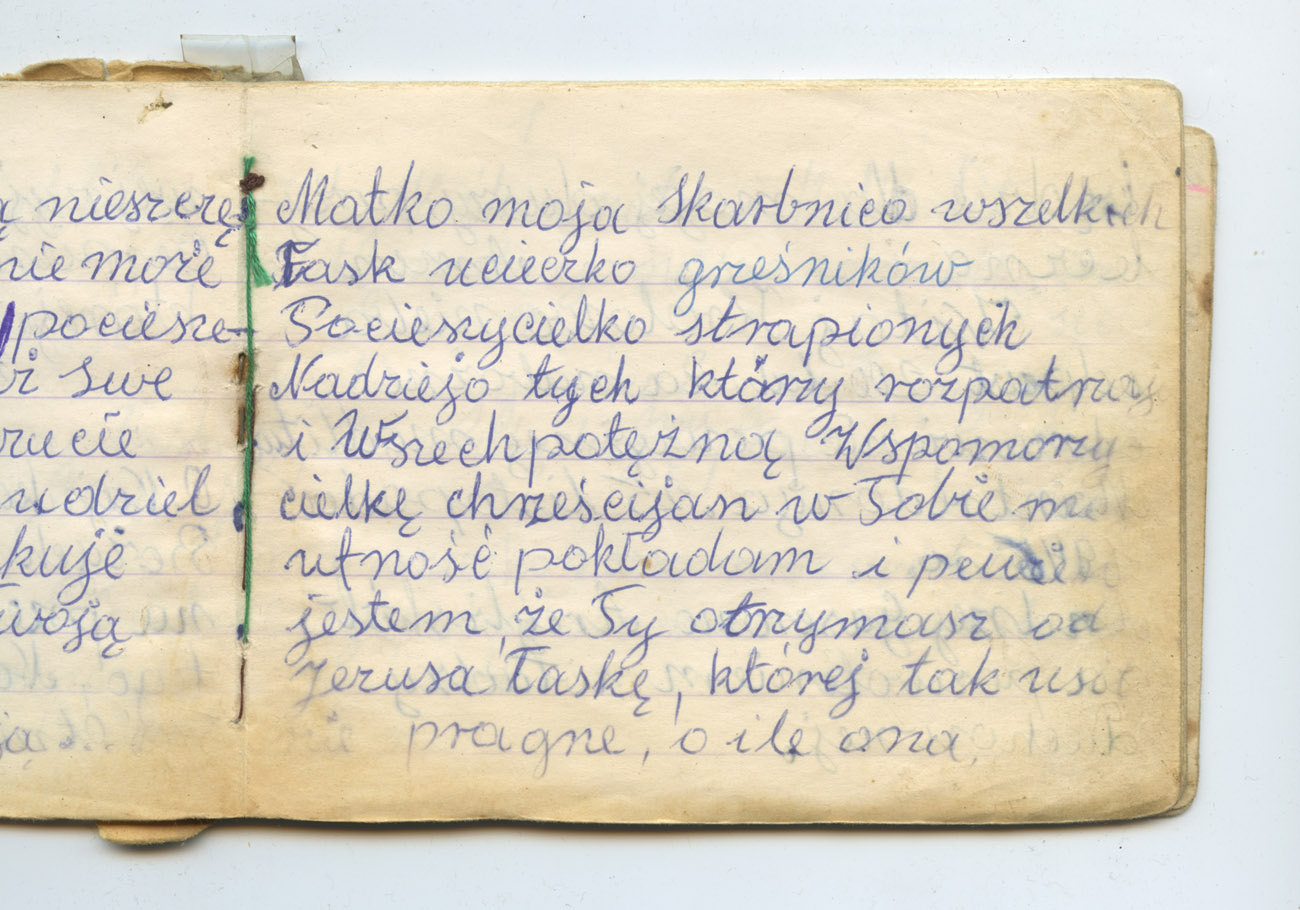 ą nieszczę
nie może
pociesze-
swe
rucie
udziel
kuję
woją
ją
Matko moja Skarbnico wszelkich
Łask ucieczko grześników
Pocieszycielko strapionych
Nadziejo tych którzy rozpatrzay
i Wszechpotężną Wspomorzy-
cielkę chrześcijan w Tobie m
utność pokładam i pewni
jestem, że Ty otrzymasz od
Jezusa Łaskę, której tak usi
pragne, o ile ona